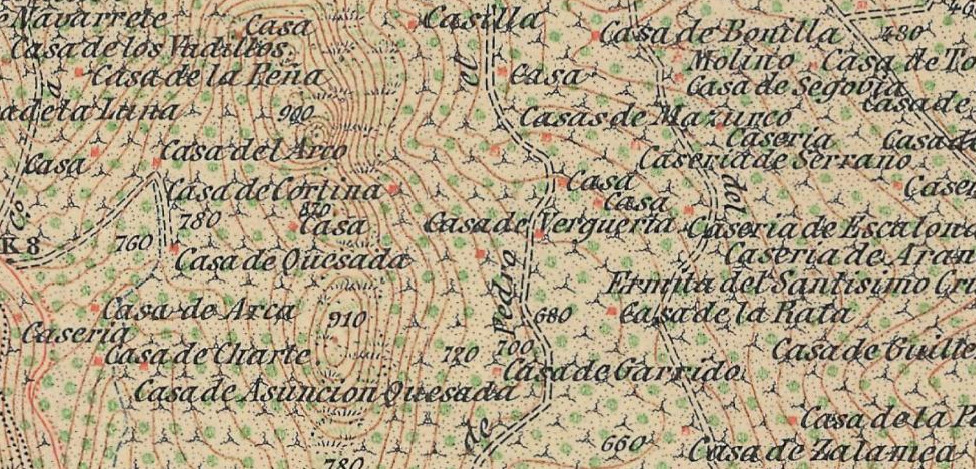 Navarrete
Casa
Casilla
Casa de Bonilla
480
Casa de los Vadillos
Molino
Casa de To
Casa de la Peña
el
Casa
Casa de Segovia
Casa de
a de la Luna
900
Casas de Mazurco
Casa del Arco
Caseria
Casa
Caseria de Serrano
Casa
Casa de Cortina
Casa
Caser
del
780
870
Casa
Casa
C.º
Casa de Vergueria
Caseria de Escalon
K 8
760
Casa de Quesada
Caseria de Aran
Pedro
Ermita del Santisimo Cri
Casa de Arca
910
680
Casa de la Rata
Caseria
Casa de Charte
720
700
Casa de Guille
Casa de Garrido
Casa de Asunción Quesada
Casa de la
de
660
Casa de Zalamea
780